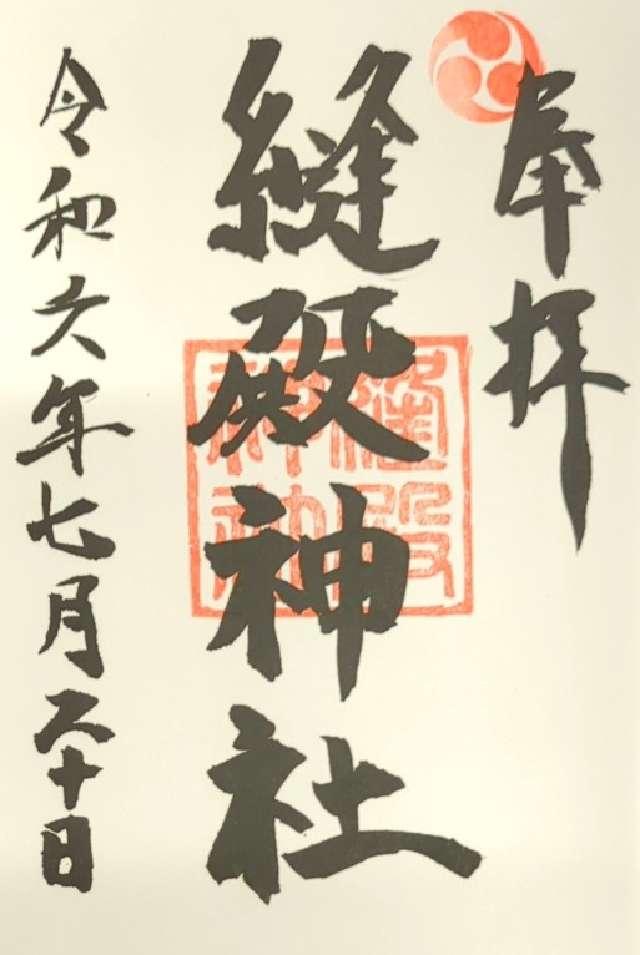 奉拝
縫殿神社
縫殿
神社
令和六年七月二十日